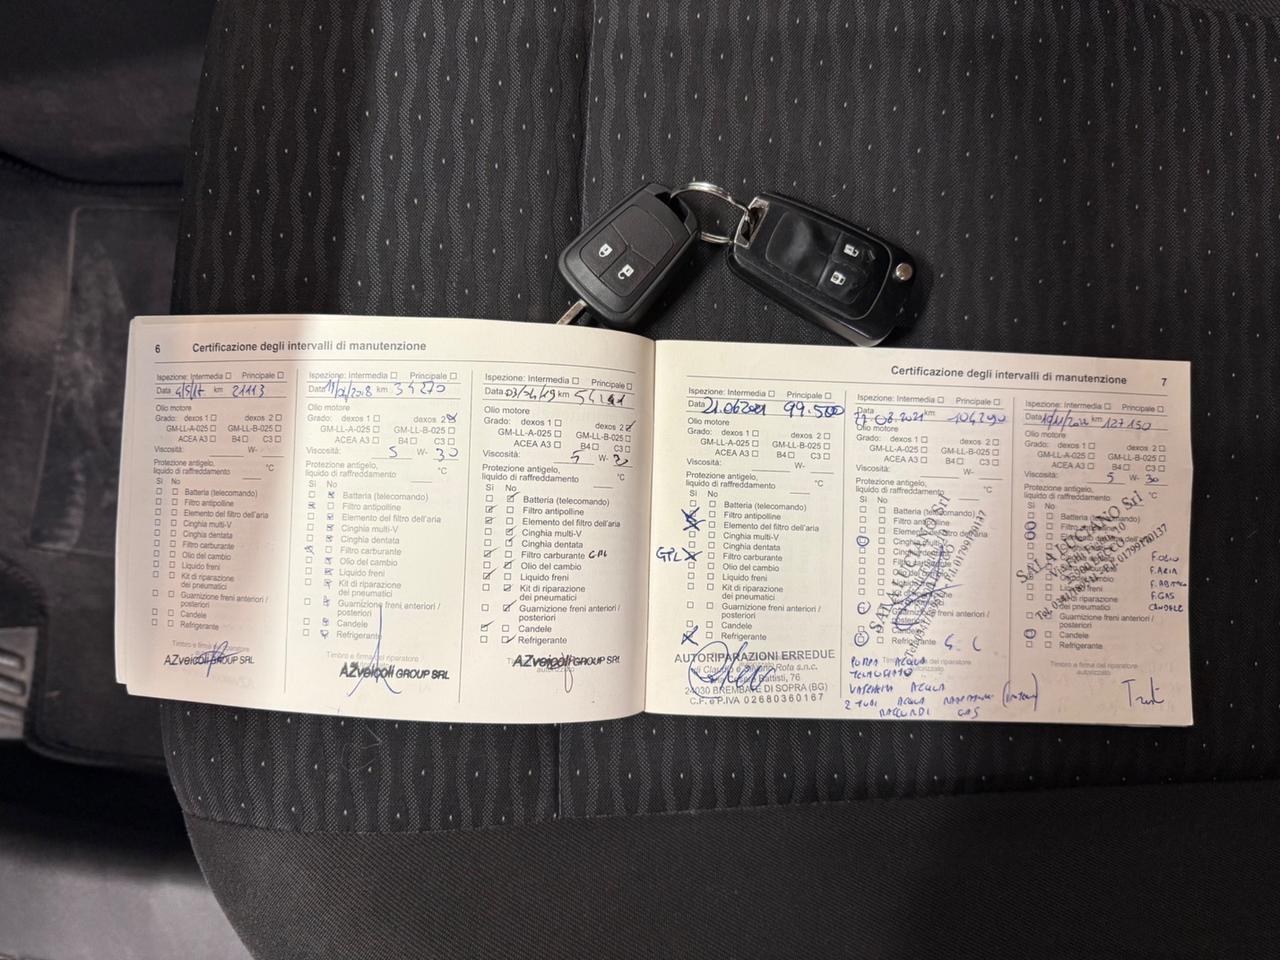 6 Certificazione degli intervalli di manutenzione
Ispezione: Intermedia ☐ Principale ☐
Data 4/5/17 km 21113
Olio motore
Grado: dexos 1 ☐ dexos 2 ☐
GM-LL-A-025 ☐ GM-LL-B-025 ☐
ACEA A3 ☐ B4 ☐ C3 ☐
Viscosità: W-
Protezione antigelo,
liquido di raffreddamento °C
Sì No
Batteria (telecomando)
Filtro antipolline
Elemento del filtro dell'aria
Cinghia multi-V
Cinghia dentata
Filtro carburante
Olio del cambio
Liquido freni
Kit di riparazione
dei pneumatici
Guarnizione freni anteriori /
posteriori
Candele
Refrigerante
Timbro e firma del riparatore
AZveicoli GROUP SRL
Ispezione: Intermedia ☐ Principale ☐
Data 11/04/2018 km 34270
Olio motore
Grado: dexos 1 ☐ dexos 2
GM-LL-A-025 ☐ GM-LL-B-025 ☐
ACEA A3 ☐ B4 ☐ C3 ☐
Viscosità: 5 W- 30
Protezione antigelo,
liquido di raffreddamento °C
Sì No
Batteria (telecomando)
Filtro antipolline
Elemento del filtro dell'aria
Cinghia multi-V
Cinghia dentata
Filtro carburante
Olio del cambio
Liquido freni
Kit di riparazione
dei pneumatici
Guarnizione freni anteriori /
posteriori
Candele
Refrigerante
Timbro e firma del riparatore
AZveicoli GROUP SRL
Ispezione: Intermedia ☐ Principale ☐
Data 03/04/19 km
Olio motore
Grado: dexos 1 ☐ dexos 2
GM-LL-A-025 ☐ GM-LL-B-025 ☐
ACEA A3 ☐ B4 ☐ C3 ☐
Viscosità: 5 W- 30
Protezione antigelo,
liquido di raffreddamento °C
Sì No
Batteria (telecomando)
Filtro antipolline
Elemento del filtro dell'aria
Cinghia multi-V
Cinghia dentata
Filtro carburante GPL
Olio del cambio
Liquido freni
Kit di riparazione
dei pneumatici
Guarnizione freni anteriori /
posteriori
Candele
Refrigerante
AZveicoli GROUP SRL
autorizzato
Certificazione degli intervalli di manutenzione 7
Ispezione: Intermedia ☐ Principale ☐
Data 21.06.2021 99.500
Olio motore
Grado: dexos 1 ☐ dexos 2 ☐
GM-LL-A-025 ☐ GM-LL-B-025 ☐
ACEA A3 ☐ B4 ☐ C3 ☐
Viscosità: W-
Protezione antigelo,
liquido di raffreddamento °C
Sì No
Batteria (telecomando)
Filtro antipolline
Elemento del filtro dell'aria
Cinghia multi-V
Cinghia dentata
GPL Filtro carburante
Olio del cambio
Liquido freni
Kit di riparazione
dei pneumatici
Guarnizione freni anteriori /
posteriori
Candele
Refrigerante
AUTORIPARAZIONI ERREDUE
di Claudio e Rota s.n.c.
Battisti, 76
24030 BREMBATE DI SOPRA (BG)
C.F. e P.IVA 02680360167
Ispezione: Intermedia ☐ Principale ☐
Data 08.2021 km 104290
Olio motore
Grado: dexos 1 ☐ dexos 2 ☐
GM-LL-A-025 ☐ GM-LL-B-025 ☐
ACEA A3 ☐ B4 ☐ C3 ☐
Viscosità: W-
Protezione antigelo,
liquido di raffreddamento °C
Sì No
Batteria (telecomando)
Filtro antipolline
Elemento del filtro dell'aria
Cinghia multi-V
Cinghia dentata
Filtro carburante
Olio del cambio
Liquido freni
Guarnizione freni anteriori /
posteriori
Candele
Refrigerante
POMPA ACQUA
TERMOSTATO
VASCHETTA ACQUA
2 TUBI ACQUA
RACCORDI GAS
Ispezione: Intermedia ☐ Principale ☐
Data km 127150
Olio motore
Grado: dexos 1 ☐ dexos 2 ☐
GM-LL-A-025 ☐ GM-LL-B-025 ☐
ACEA A3 ☐ B4 ☐ C3 ☐
Viscosità: 5 W- 30
Protezione antigelo,
liquido di raffreddamento °C
Sì No
Batteria
SALA LUCIANO Srl
F. OLIO
F. ARIA
F. GAS
CANDELE
Guarnizione freni anteriori /
posteriori
Candele
Refrigerante
Timbro e firma del riparatore
autorizzato